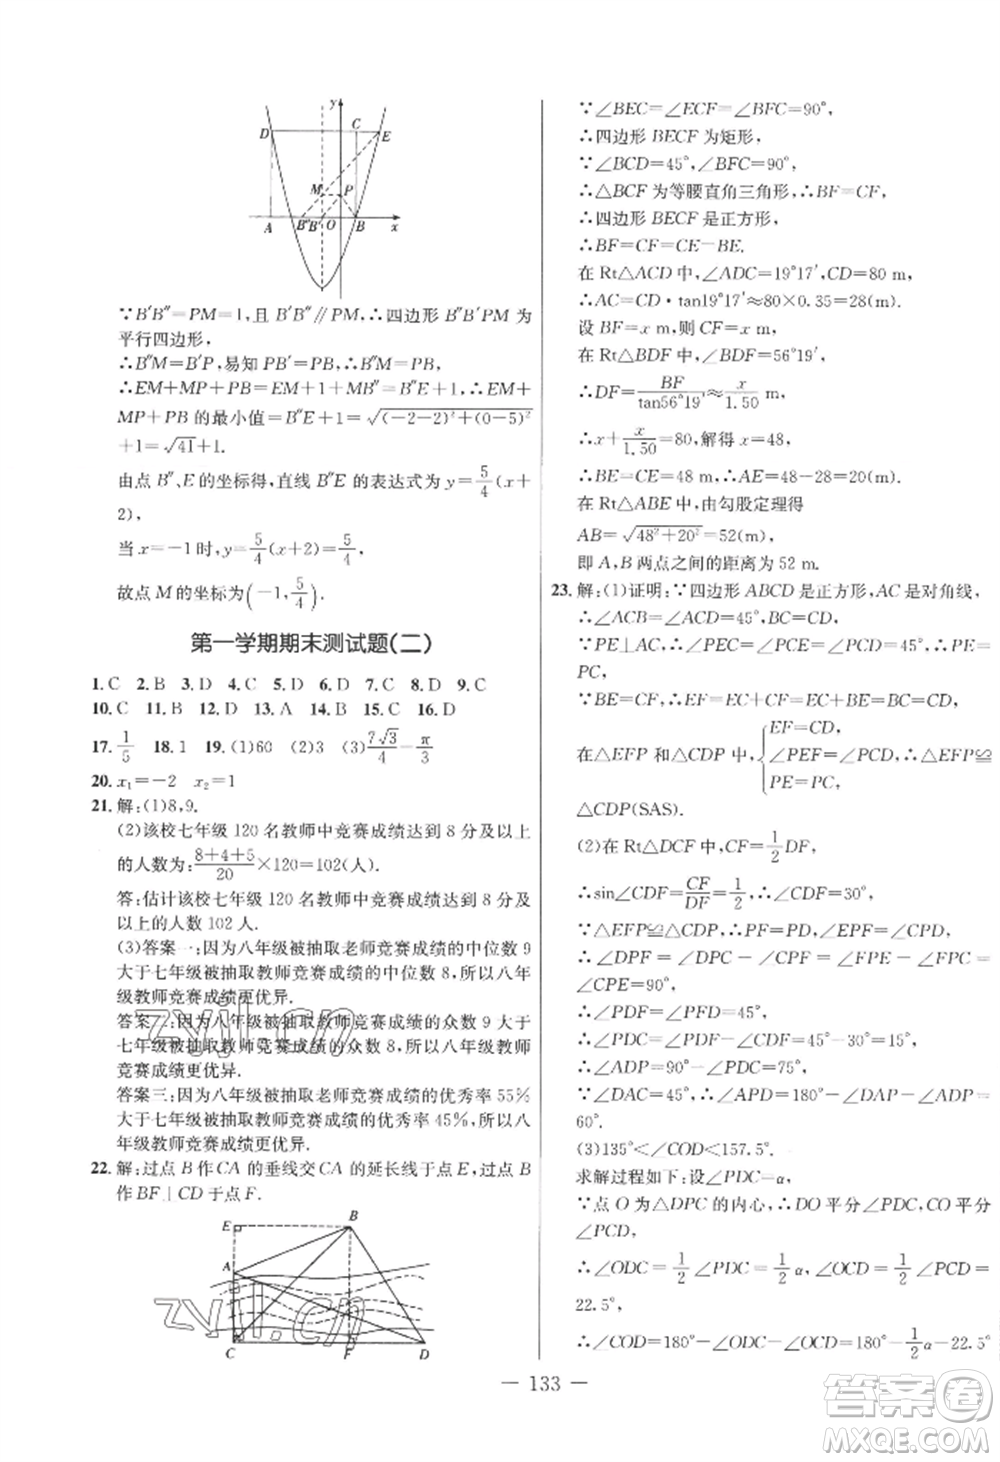 y
D
C
E
M
P
A
B″
B′
O
B
x
∵B′B″=PM=1,且 B′B″∥PM,∴四边形 B″B′PM 为
平行四边形,
∴B″M=B′P,易知 PB′=PB,∴B″M=PB,
∴EM+MP+PB=EM+1+MB″,∴EM+
MP+PB 的最小值=B″E+1=√((-2-2)²+(0-5)²)
+1=√41+1.
由点 B″、E 的坐标得,直线 B″E 的表达式为 y=5/4(x+
2),
当 x=-1时,y=5/4(x+2)=5/4,
故点 M 的坐标为(-1,5/4).
第一学期期末测试题(二)
1.C 2.B 3.D 4.C 5.D 6.D 7.C 8.D 9.C
10.C 11.B 12.D 13.A 14.B 15.C 16.D
17.1/5 18.1 19.(1)60 (2)3 (3)7√3/4-π/3
20.x₁=-2 x₂=1
21.解:(1)8,9.
(2)该校七年级 120 名教师中竞赛成绩达到 8 分及以上
的人数为:(8+4+5)/20×120=102(人).
答:估计该校七年级 120 名教师中竞赛成绩达到 8 分及
以上的人数 102 人.
(3)答案一:因为八年级被抽取老师竞赛成绩的中位数 9
大于七年级被抽取教师竞赛成绩的中位数 8,所以八年
级教师竞赛成绩更优异.
答案二:因为八年级被抽取教师竞赛成绩的众数 9 大于
七年级被抽取教师竞赛成绩的众数 8,所以八年级教师
竞赛成绩更优异.
答案三:因为八年级被抽取老师竞赛成绩的优秀率 55%
大于七年级被抽取教师竞赛成绩的优秀率 45%,所以八
年级教师竞赛成绩更优异.
22.解:过点 B 作 CA 的垂线交 CA 的延长线于点 E,过点 B
作 BF⊥CD 于点 F.
E
B
A
C
F
D
∵∠BEC=∠ECF=∠BFC=90°,
∴四边形 BECF 为矩形,
∵∠BCD=45°,∠BFC=90°,
∴△BCF 为等腰直角三角形,∴BF=CF,
∴四边形 BECF 是正方形,
∴BF=CF=CE=BE.
在 Rt△ACD 中,∠ADC=19°17′,CD=80 m,
∴AC=CD·tan19°17′≈80×0.35=28(m).
设 BF=x m,则 CF=x m,
在 Rt△BDF 中,∠BDF=56°19′,
∴DF=BF/tan56°19′≈x/1.50 m,
∴x+x/1.50=80,解得 x=48,
∴BE=CE=48 m,∴AE=48-28=20(m).
在 Rt△ABE 中,由勾股定理得
AB=√(48²+20²)=52(m),
即 A,B 两点之间的距离为 52 m.
23.解:(1)证明:∵四边形 ABCD 是正方形,AC 是对角线,
∴∠ACB=∠ACD=45°,BC=CD,
∵PE⊥AC,∴∠PEC=∠PCD=45°,∴PE=
PC,
∵BE=CF,∴EF=EC+CF=EC+BE=BC=CD,
在△EFP 和△CDP 中,{EF=CD, ∠PEF=∠PCD, PE=PC, ∴△EFP≌
△CDP(SAS).
(2)在 Rt△DCF 中,∵CF=1/2DF,
∴sin∠CDF=CF/DF=1/2,∴∠CDF=30°,
∵△EFP≌△CDP,∴PF=PD,∠EPF=∠CPD,
∴∠DPF=∠EPF+∠DPE=∠FPE+∠DPE=
∠CPE=90°,
∴∠PDF=∠PFD=45°,
∴∠PDC=∠PDF+∠CDF=45°+30°=75°,
∴∠ADP=90°-∠PDC=15°,
∵∠DAC=45°,∴∠APD=180°-45°-15°=120°
60°.
(3)135°<∠COD<157.5°.
求解过程如下:设∠PDC=α,
∵点 O 为△DPC 的内心,∴DO 平分∠PDC,CO 平分
∠PCD,
∴∠ODC=1/2∠PDC=1/2α,∠OCD=1/2∠PCD=
22.5°,
∴∠COD=180°-∠ODC-∠OCD=180°-1/2α-22.5°
— 133 —
zyjl.cn
zyjl.cn
答案圈
MXQE.COM